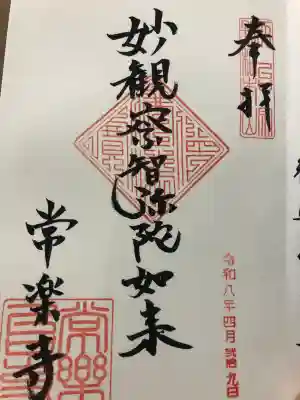 奉拝
妙観察智弥陀如来
令和八年四月弐拾九日
常楽寺